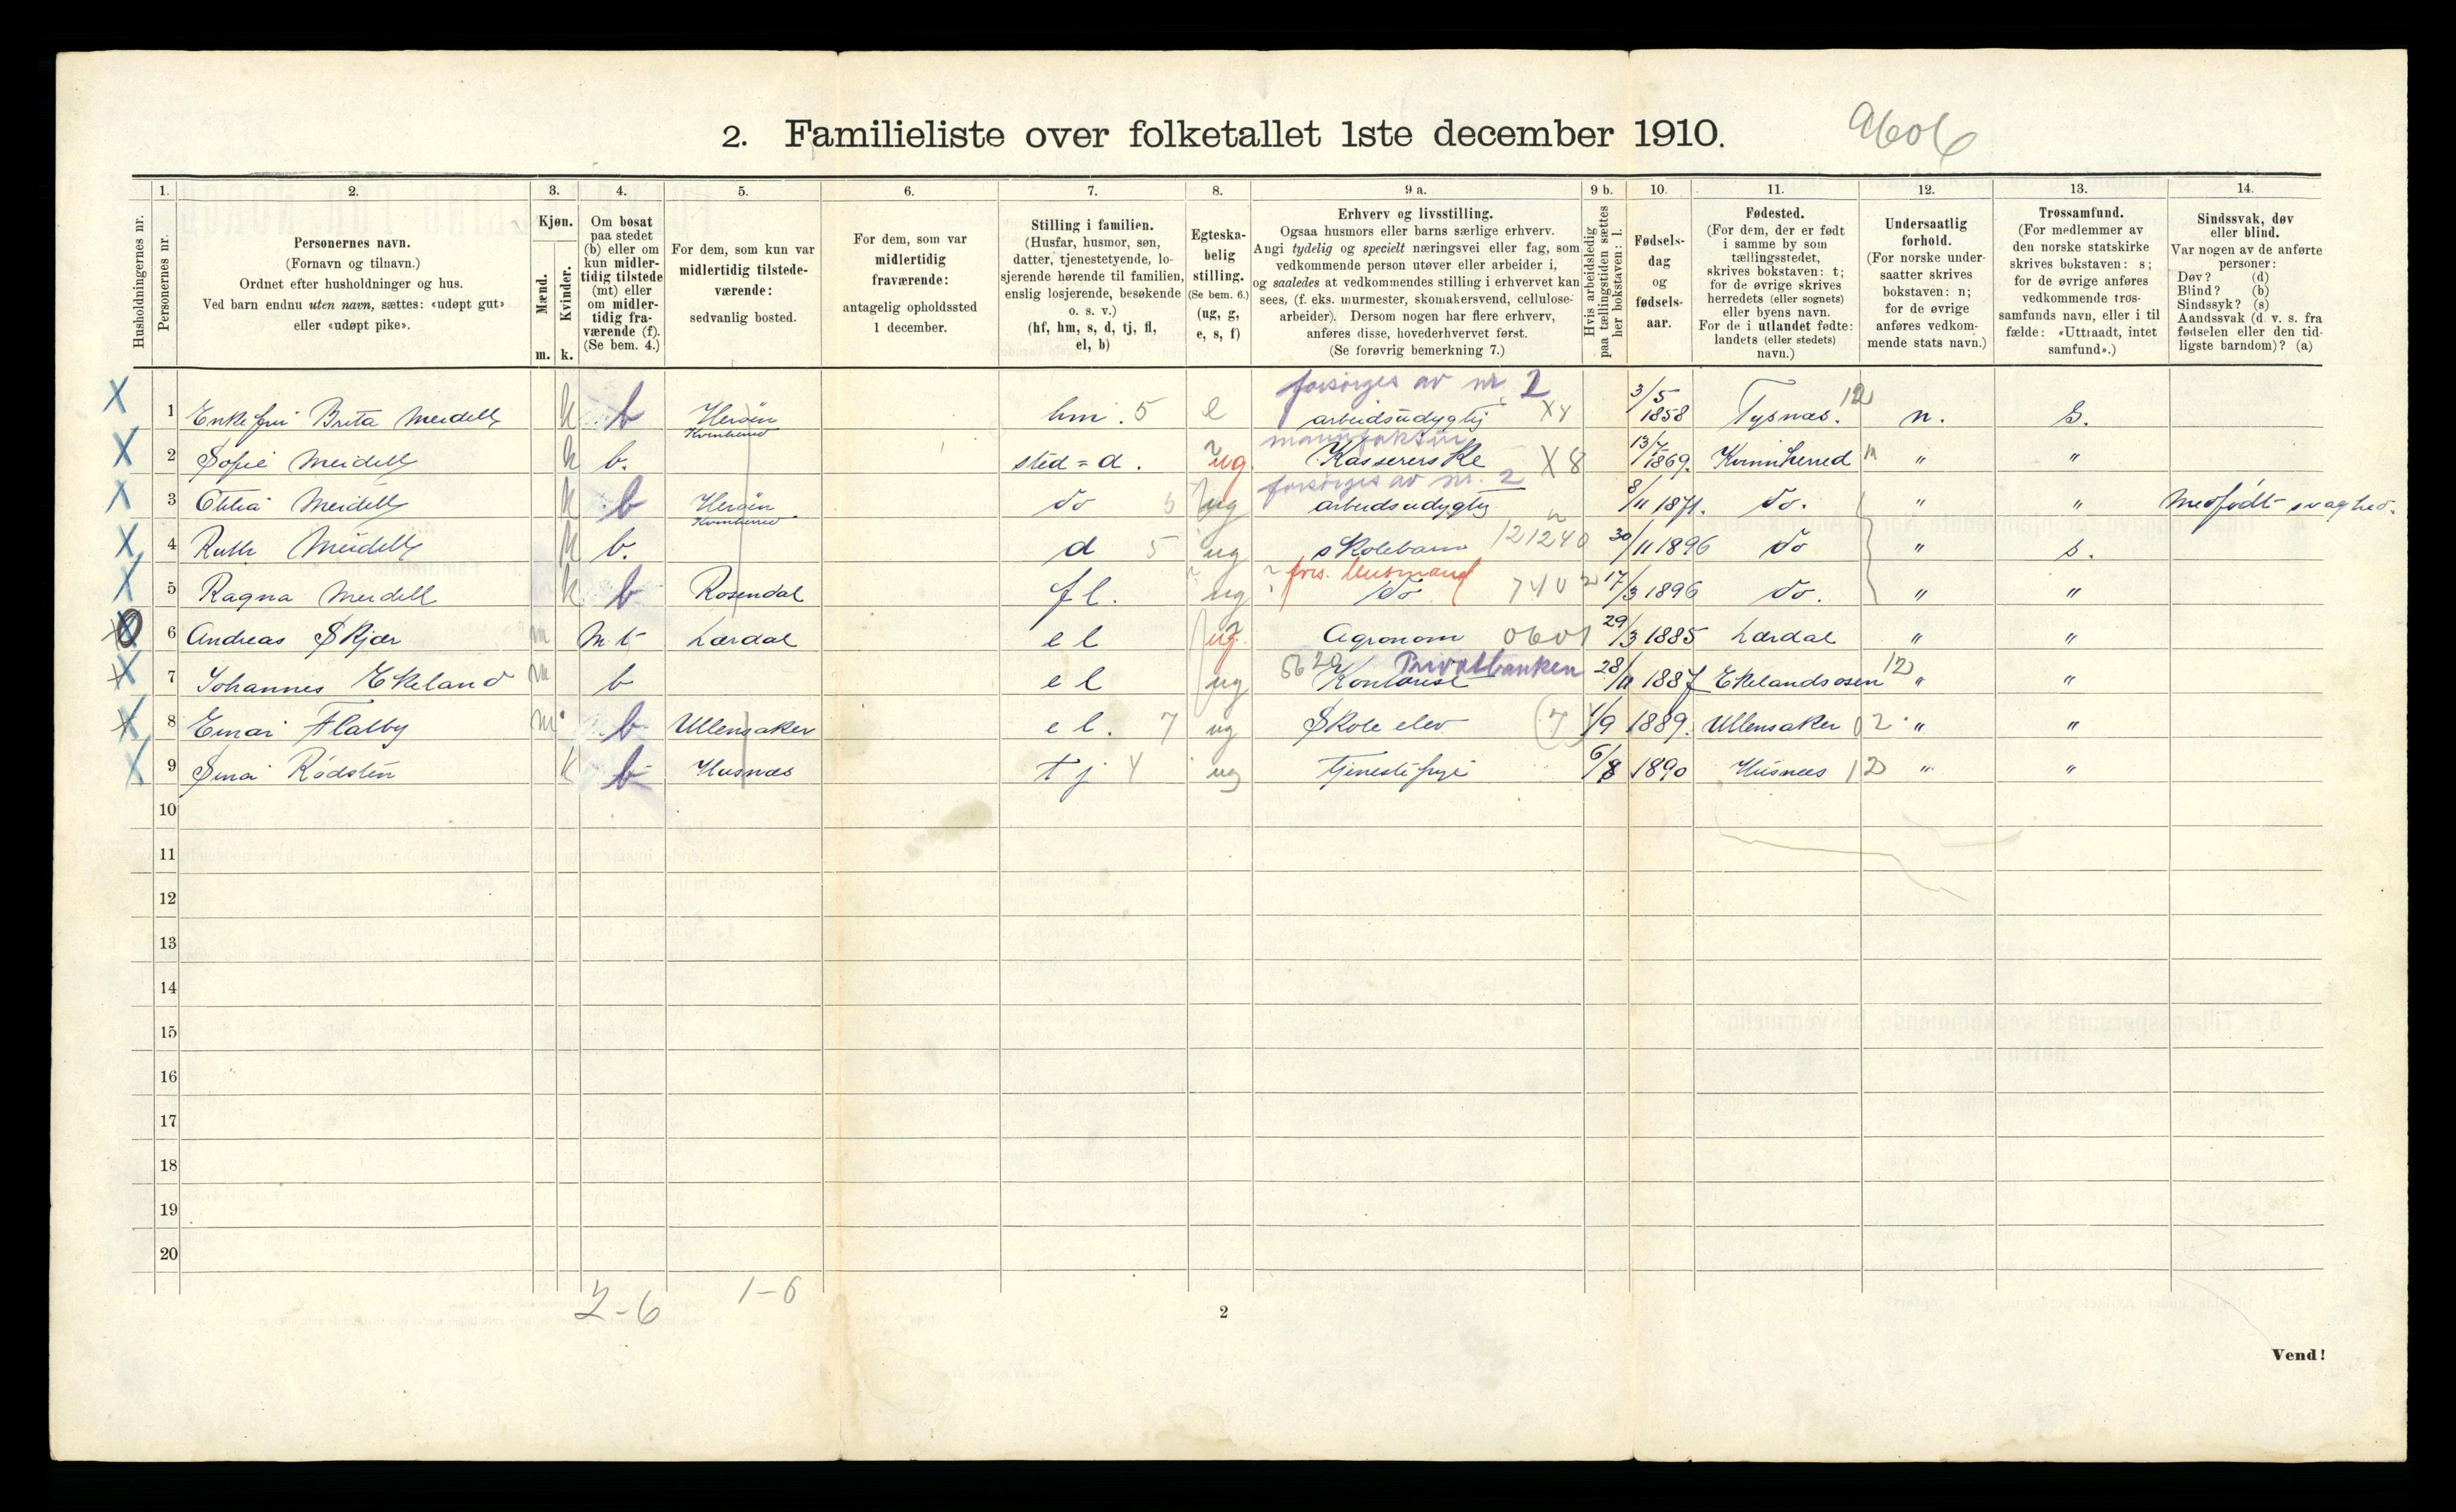 2. Familieliste over folketallet 1ste december 1910.
Husholdningernes nr.
1. Personernes nr.
2. Personernes navn.
(Fornavn og tilnavn.)
Ordnet efter husholdninger og hus.
Ved barn endnu uten navn, sættes: «udøpt gut»
eller «udøpt pike».
3. Kjøn.
Mænd. m.
Kvinder. k.
4. Om bosat
paa stedet
(b) eller om
kun midler-
tidig tilstede
(mt) eller
om midler-
tidig fra-
værende (f).
(Se bem. 4.)
5. For dem, som kun var
midlertidig tilstede-
værende:
sedvanlig bosted.
6. For dem, som var
midlertidig
fraværende:
antagelig opholdssted
1 december.
7. Stilling i familien.
(Husfar, husmor, søn,
datter, tjenestetyende, lo-
sjerende hørende til familien,
enslig losjerende, besøkende
o. s. v.)
(hf, hm, s, d, tj, fl,
el, b)
8. Egteska-
belig
stilling.
(Se bem. 6.)
(ug, g,
e, s, f)
9 a. Erhverv og livsstilling.
Ogsaa husmors eller barns særlige erhverv.
Angi tydelig og specielt næringsvei eller fag, som
vedkommende person utøver eller arbeider i,
og saaledes at vedkommendes stilling i erhvervet kan
sees, (f. eks. murmester, skomakersvend, cellulose-
arbeider). Dersom nogen har flere erhverv,
anføres disse, hovederhvervet først.
(Se forøvrig bemerkning 7.)
9 b. Hvis arbeidsledig
paa tællingstiden sættes
her bokstaven: l.
10. Fødsels-
dag
og
fødsels-
aar.
11. Fødested.
(For dem, der er født
i samme by som
tællingsstedet,
skrives bokstaven: t;
for de øvrige skrives
herredets (eller sognets)
eller byens navn.
For de i utlandet fødte:
landets (eller stedets)
navn.)
12. Undersaatlig
forhold.
(For norske under-
saatter skrives
bokstaven: n;
for de øvrige
anføres vedkom-
mende stats navn.)
13. Trossamfund.
(For medlemmer av
den norske statskirke
skrives bokstaven: s;
for de øvrige anføres
vedkommende tros-
samfunds navn, eller i til
fælde: «Uttraadt, intet
samfund».)
14. Sindssvak, døv
eller blind.
Var nogen av de anførte
personer:
Døv? (d)
Blind? (b)
Sindssyk? (s)
Aandssvak (d. v. s. fra
fødselen eller den tid-
ligste barndom)? (a)
forsørges av nr. 2
X 1 Enkefru Brita Meidell k b Herøen hm. 5 e arbeidsudygtig X4 3/5 1858 Tysnæs. 12 n. S.
Kvinherred
manufaktur
X 2 Sofie Meidell k b. sted=d. ug. Kassererske X8 13/7 1869. Kvinherred " "
forsørges av nr. 2
X 3 Othia Meidell k b Herøen do ug arbeidsudygtig 8/11 1871. do. " " Medfødt svaghed.
Kvinherred
X 4 Ruth Meidell k b. d 5 ug skolebarn 121240 30/11 1896 do " s.
fors. Husmand
X 5 Ragna Meidell k b Rosendal fl. ug do 17/3 1896 do. " "
6 Andreas Skjær m mt Lærdal el ug. Agronom 0601 29/3 1885 Lærdal " "
Privatbanken
X 7 Johannes Ekeland m b el ug Kontorist 28/11 1887 Ekelandsosen 12 " "
X 8 Einar Flatby m b Ullensaker el. 7 ug Skole elev (7) 1/9 1889. Ullensaker 12 " "
X 9 Sina Rødsten k b Husnæs tj 4 ug tjenestepige 6/8 1890 Husnæs 12 " "
10
11
12
13
14
15
16
17
18
19
20
2-6 1-6
2
Vend!